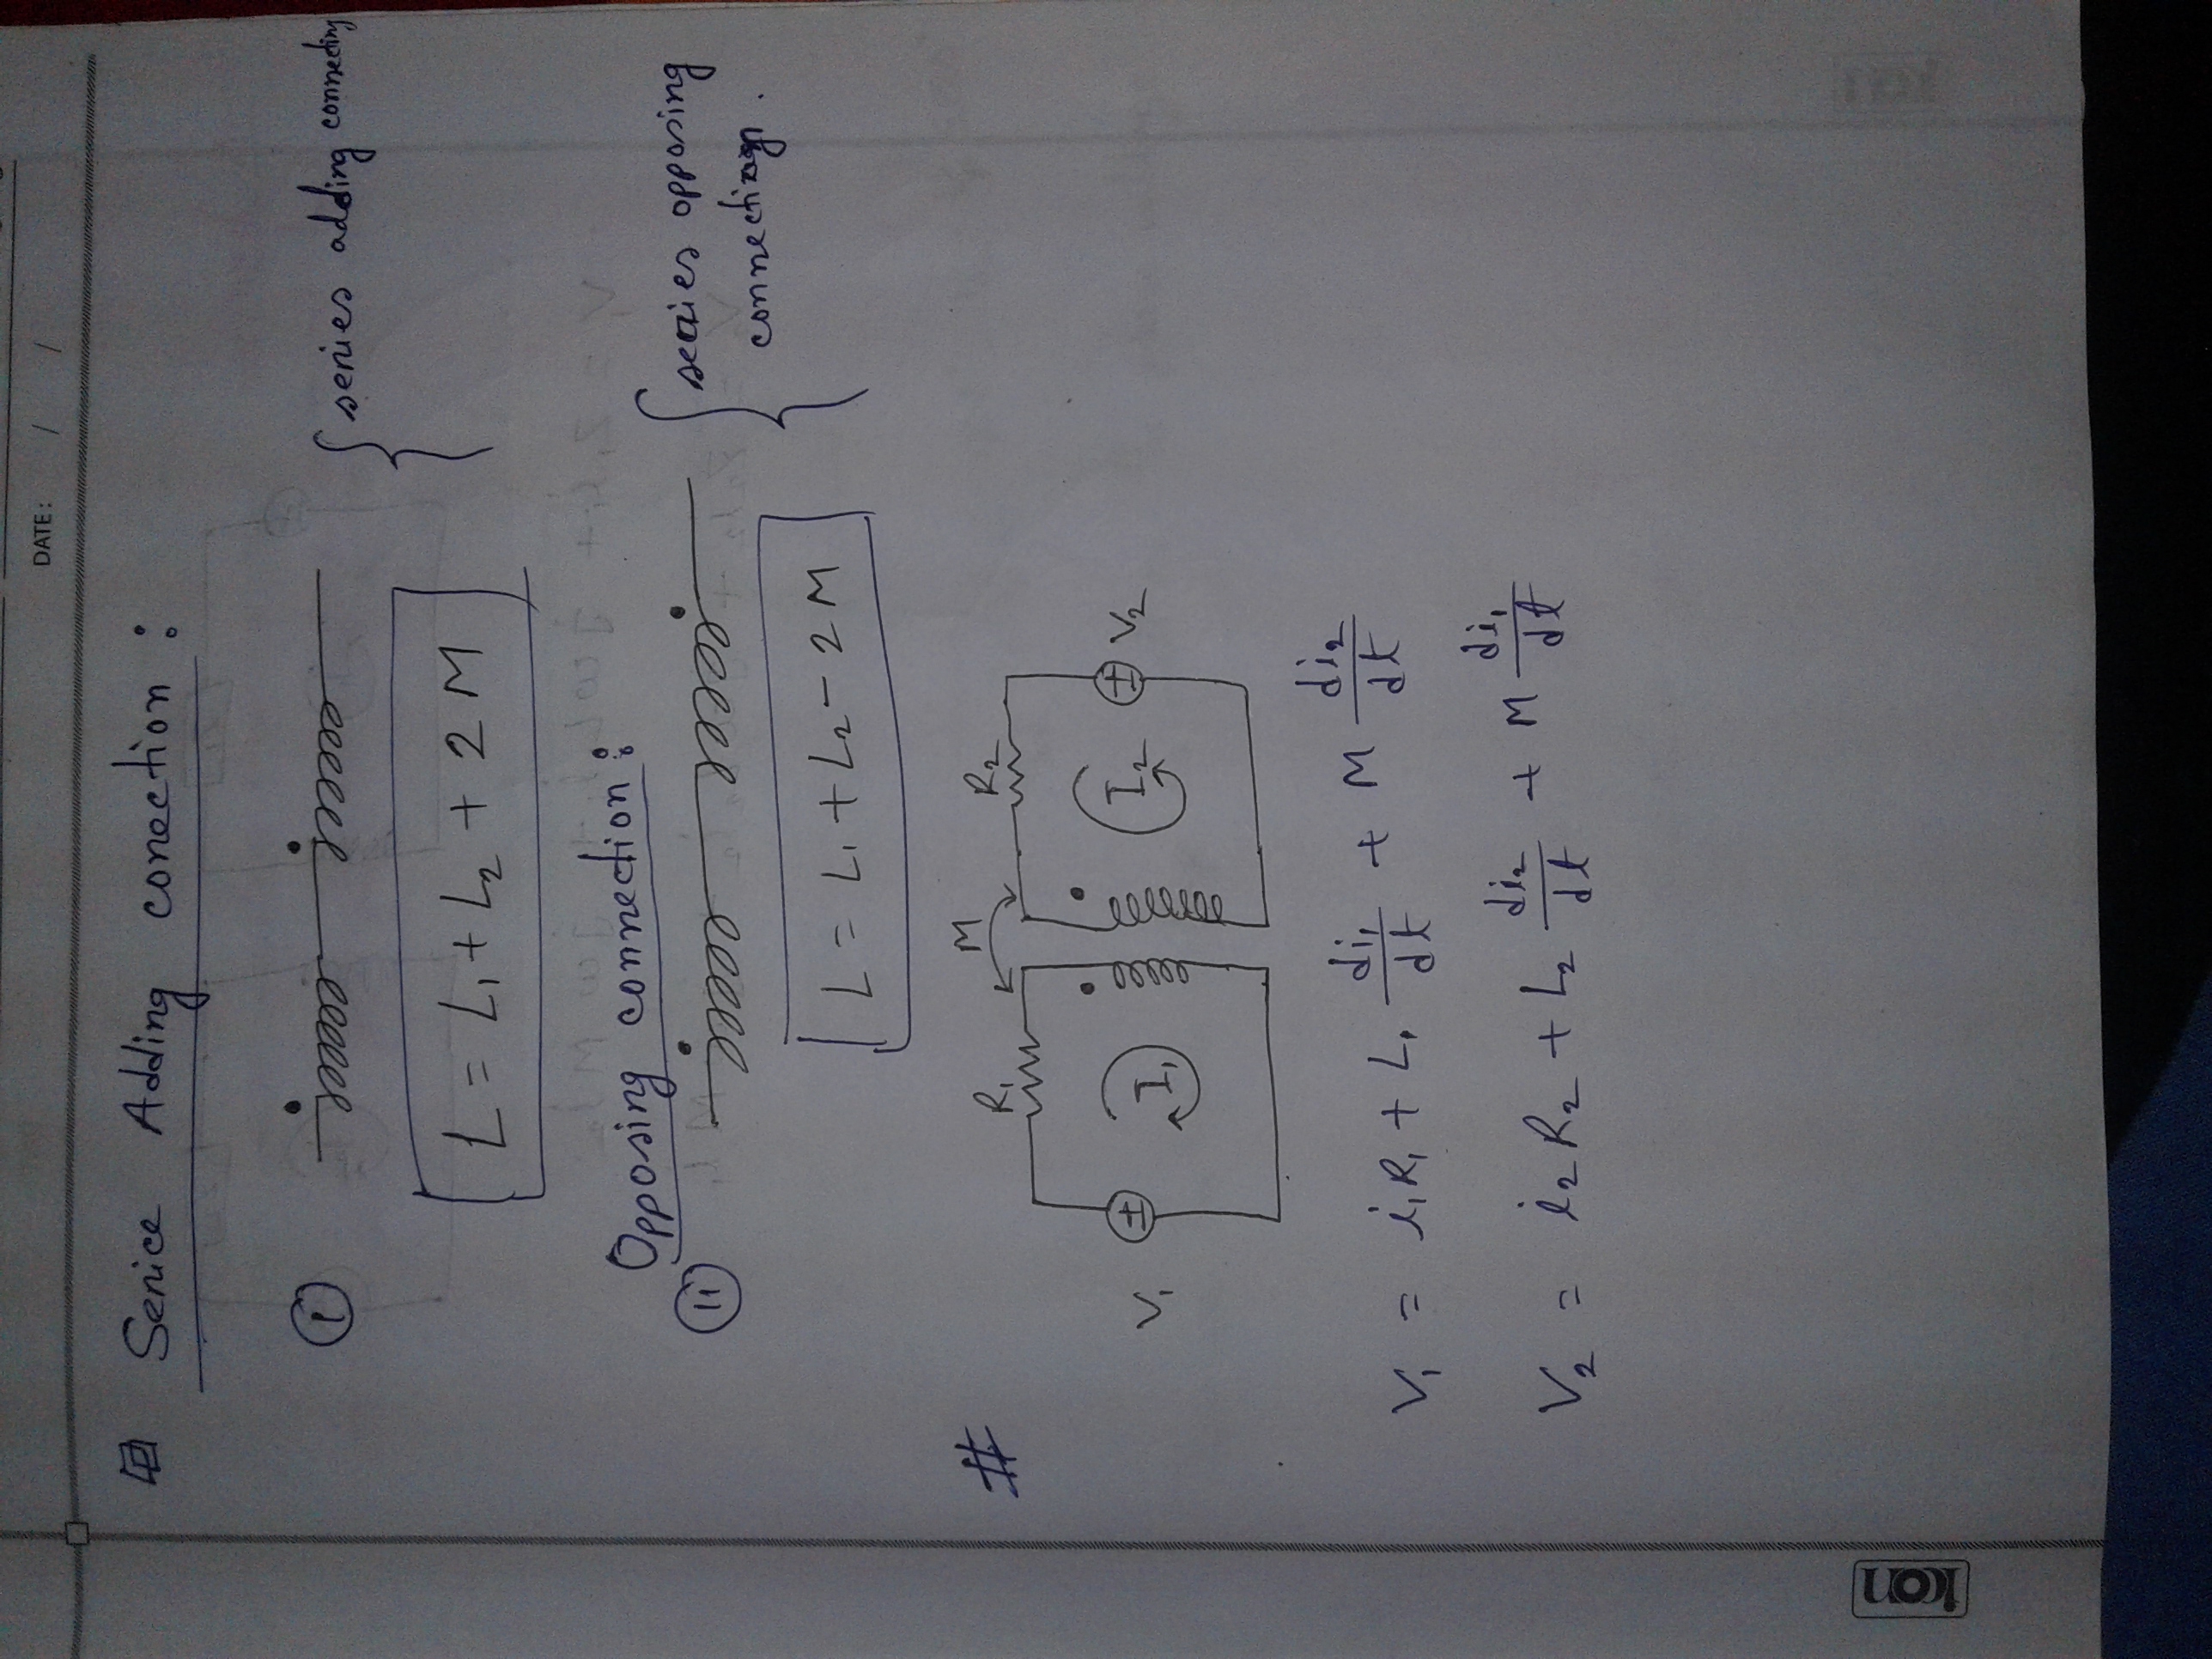 DATE: / /
Serice Adding conection:
(i)
series adding connecting
L = L₁ + L₂ + 2M
Opposing connection:
(ii)
series opposing
L = L₁ + L₂ - 2M
#
R₁ M R₂
V₁ I₁ I₂ V₂
V₁ = i₁R₁ + L₁ di₁/dt + M di₂/dt
V₂ = i₂R₂ + L₂ di₂/dt + M di₁/dt
icon